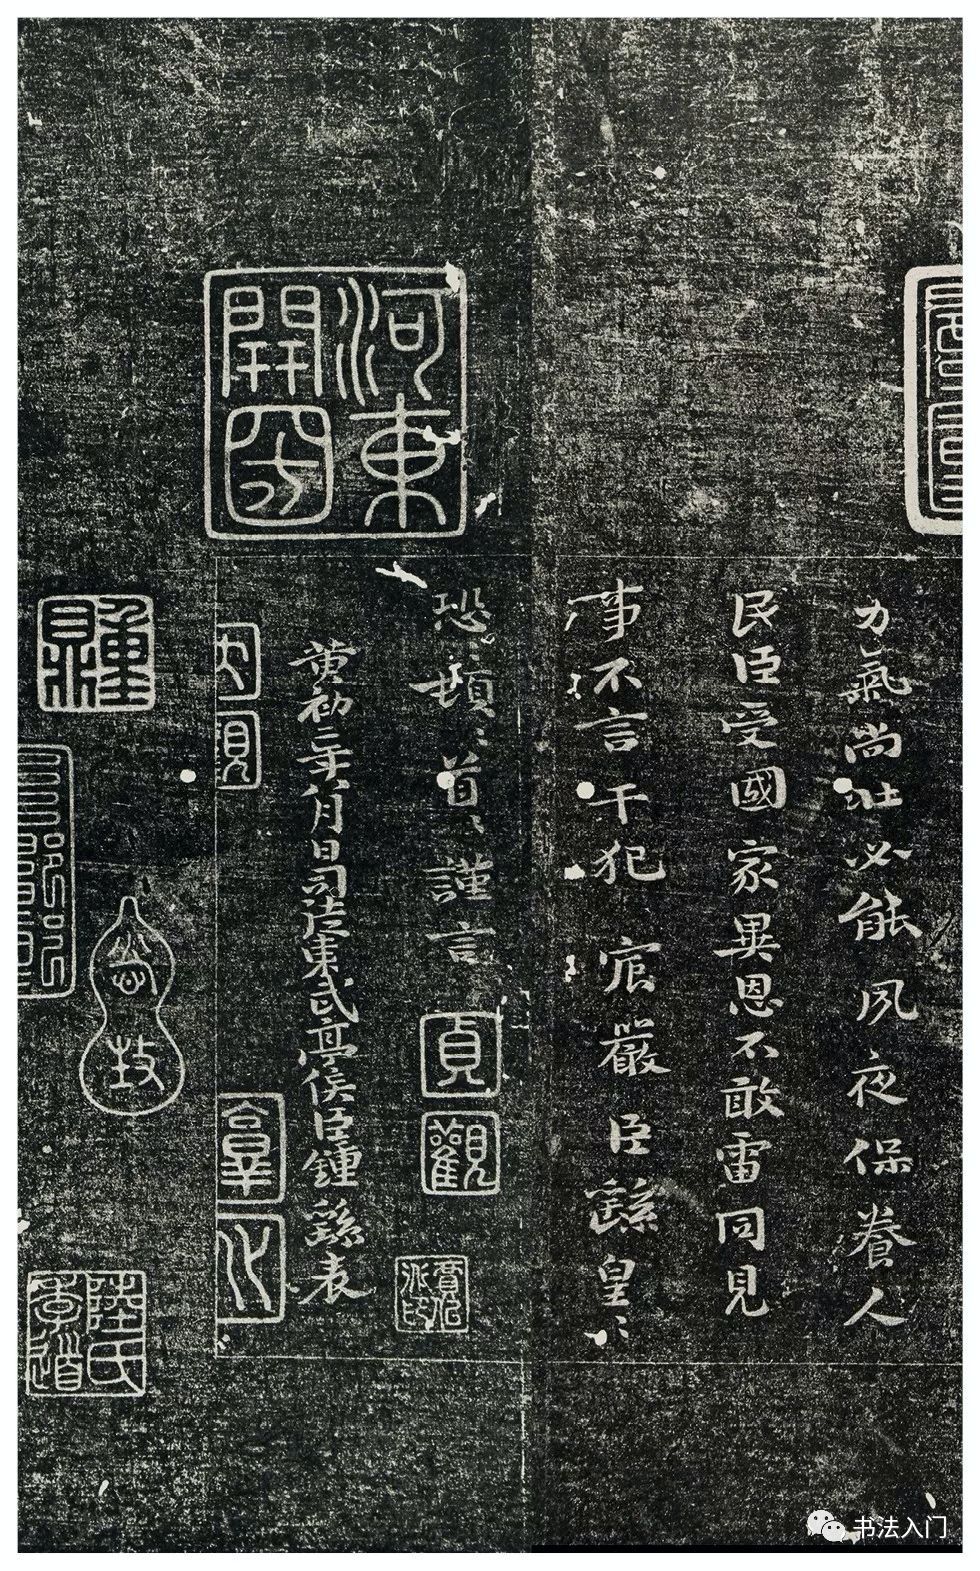 力氣尚壯必能夙夜保養人
民臣受國家異恩不敢雷同見
事不言干犯宸嚴臣繇皇〻
恐〻頓〻首〻謹言
黃初二年八月日司徒東武亭侯臣鍾繇表
河東
開國
貞
觀
陸氏
季道
书法入门